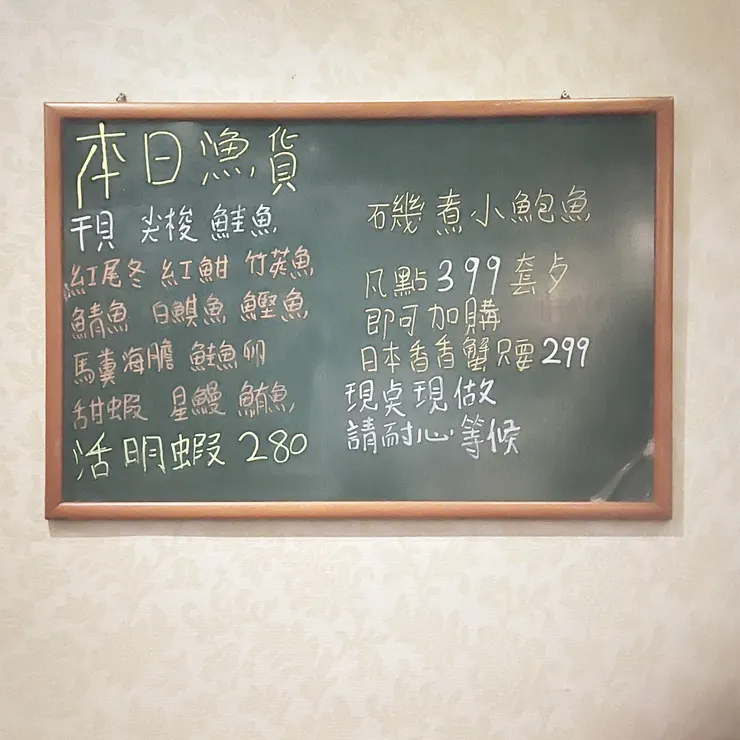 本日漁貨
干貝 尖梭 鮭魚
紅尾冬 紅魽 竹筴魚
鯖魚 白鯕魚 鰹魚
馬糞海膽 鮭魚卵
甜蝦 星鰻 鮪魚
活明蝦 280
磯煮小鮑魚
凡點399套歺
即可加購
日本香香蟹只要299
現桌現做
請耐心等候